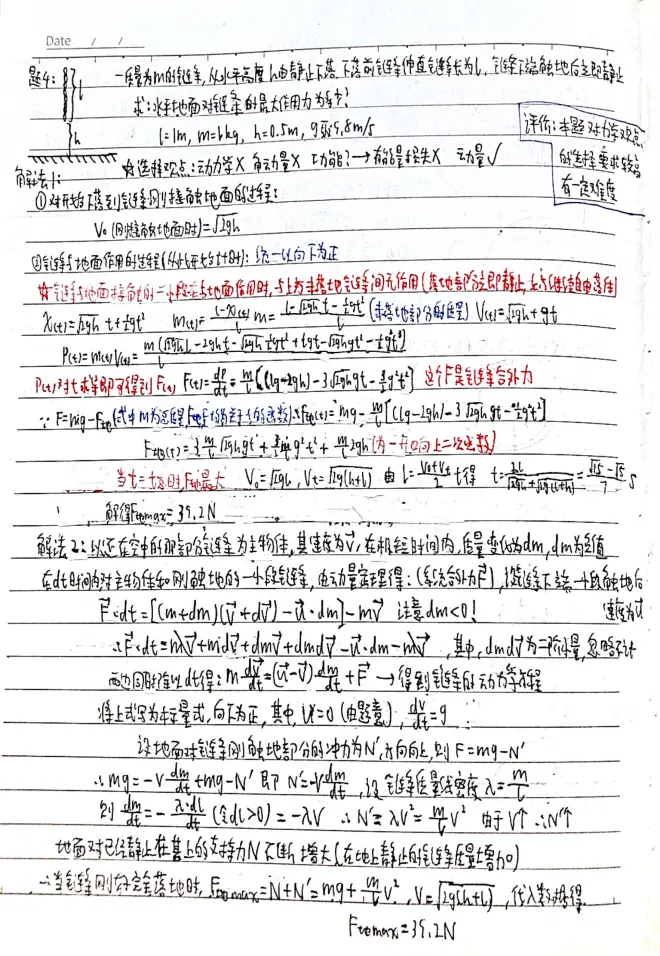 Date / /
题4: 一质量为m的链条,从水平高度h由静止下落,下落前链条伸直链条长为l,链条下端触地后立即静止
求:水平地面对链条的最大作用力为多少?
l=1m, m=1kg, h=0.5m, g取9.8m/s
评价:本题对力学观点的选择要求较高 有一定难度
l
h
解法1: ☆选择观点:动力学X 角动量X 功能?→有能量损失X 动量√
①对开始下落到链条刚刚接触地面的过程:
V₀(刚接触地面时)=√2gh
②链条与地面作用的过程(从此开始t计时): 统一以向下为正
☆链条与地面接触的一小段在与地面作用时,与上方未落地链条间无作用(落地部分立即静止,上方继续自由落体)
X(t)=√2gh t+½gt² m(t)=(l-X(t))/l m=(l-√2gh t-½gt²)/l (未落地部分的质量) V(t)=√2gh+gt
P(t)=m(t)V(t)=
P(t)对t求导即可得到F(t) F(t)=dp/dt=m/l[(lg-2gh)-3√2gh gt-3/2g²t²] 这个F是链条合外力
F地(t)=3m/l √2gh gt+3/2 m/l g²t²+m/l 2gh (为一开口向上二次函数)
当t=t落时,F地最大 V₀=√2gh, Vt=√2g(h+l) 由 l=(V₀+Vt)/2 t得 t=2l/(√2gh+√2g(l+h))=
解得F地max=39.2N
解法2:以还在空中的那部分链条为主物体,其速度为v⃗,在极短时间内,质量变化为dm,dm为负值
在dt时间内对主物体和刚触地的一小段链条,由动量定理得:(系统合外力F⃗),设链条下端一小段触地后速度为u⃗
F⃗·dt=[(m+dm)(v⃗+dv⃗)-u⃗·dm]-mv⃗ 注意dm<0!
∴F⃗·dt=mv⃗+mdv⃗+dmv⃗+dmdv⃗-u⃗·dm-mv⃗ ,其中,dmdv⃗为二阶小量,忽略不计
两边同时除以dt得:m dv⃗/dt=(u⃗-v⃗)dm/dt+F⃗ →得到链条的动力学方程
将上式写为标量式,向下为正,其中,u=0(由题意), dv/dt=g
设地面对链条刚触地部分的冲力为N′,方向向上,则 F=mg-N′
∴mg=-v dm/dt+mg-N′ 即 N′=-v dm/dt ,设链条质量线密度 λ=m/l
则 dm/dt=-λ·dl/dt (令dl>0)=-λv ∴N′=λv²=m/l v² 由于v↑ ∴N′↑
地面对已经静止在其上的支持力N不断增大(在地上静止的链条质量增加)
∴当链条刚好完全落地时, F地max=N+N′=mg+m/l v², V=√2g(h+l) ,代入数据得
F地max=39.2N